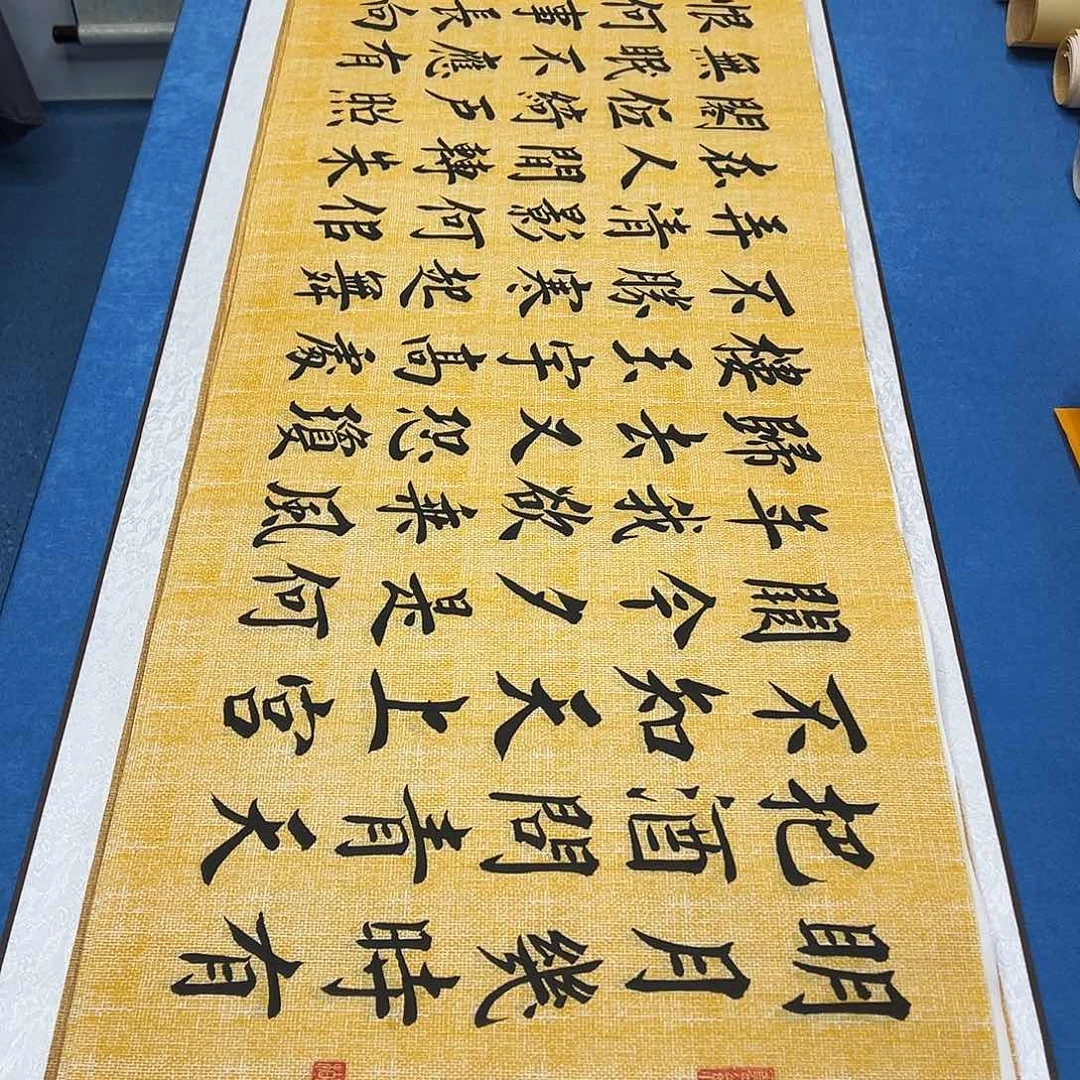 明月幾時有
把酒問青天
不知天上宮
闕今夕是何
年我欲乘風
歸去又恐瓊
樓玉宇高處
不勝寒起舞
弄清影何佀
在人間轉朱
閣低綺戶照
無眠不應有
恨何事長向